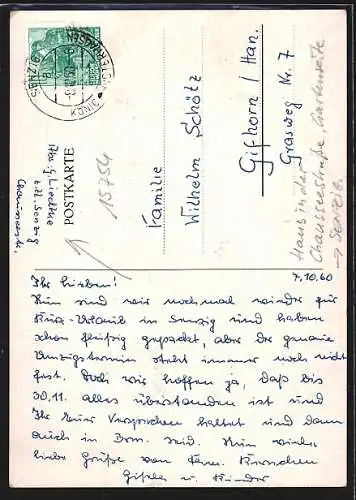 Abs. G. Liedtke
z.Zt. Senzig
Chausseestr.
POSTKARTE
15754
Familie
Wilhelm Schötz
Gifhorn / Han.
Grasweg Nr. 7
Haus in der
Chausseestraße, Gartenseite
→ Senzig.
7.10.60
Ihr Lieben!
Nun sind wir nochmal wieder für
Kurz-Urlaub in Senzig und haben
schon fleißig gepackt, aber der genaue
Umzugstermin steht immer noch nicht
fest. Doch wir hoffen ja, daß bis
30.11. alles überstanden ist und
Ihr Euer Versprechen haltet und dann
auch in Bln. seid. Nun viele
liebe Grüße von Eurem
Gisela u. Kinder